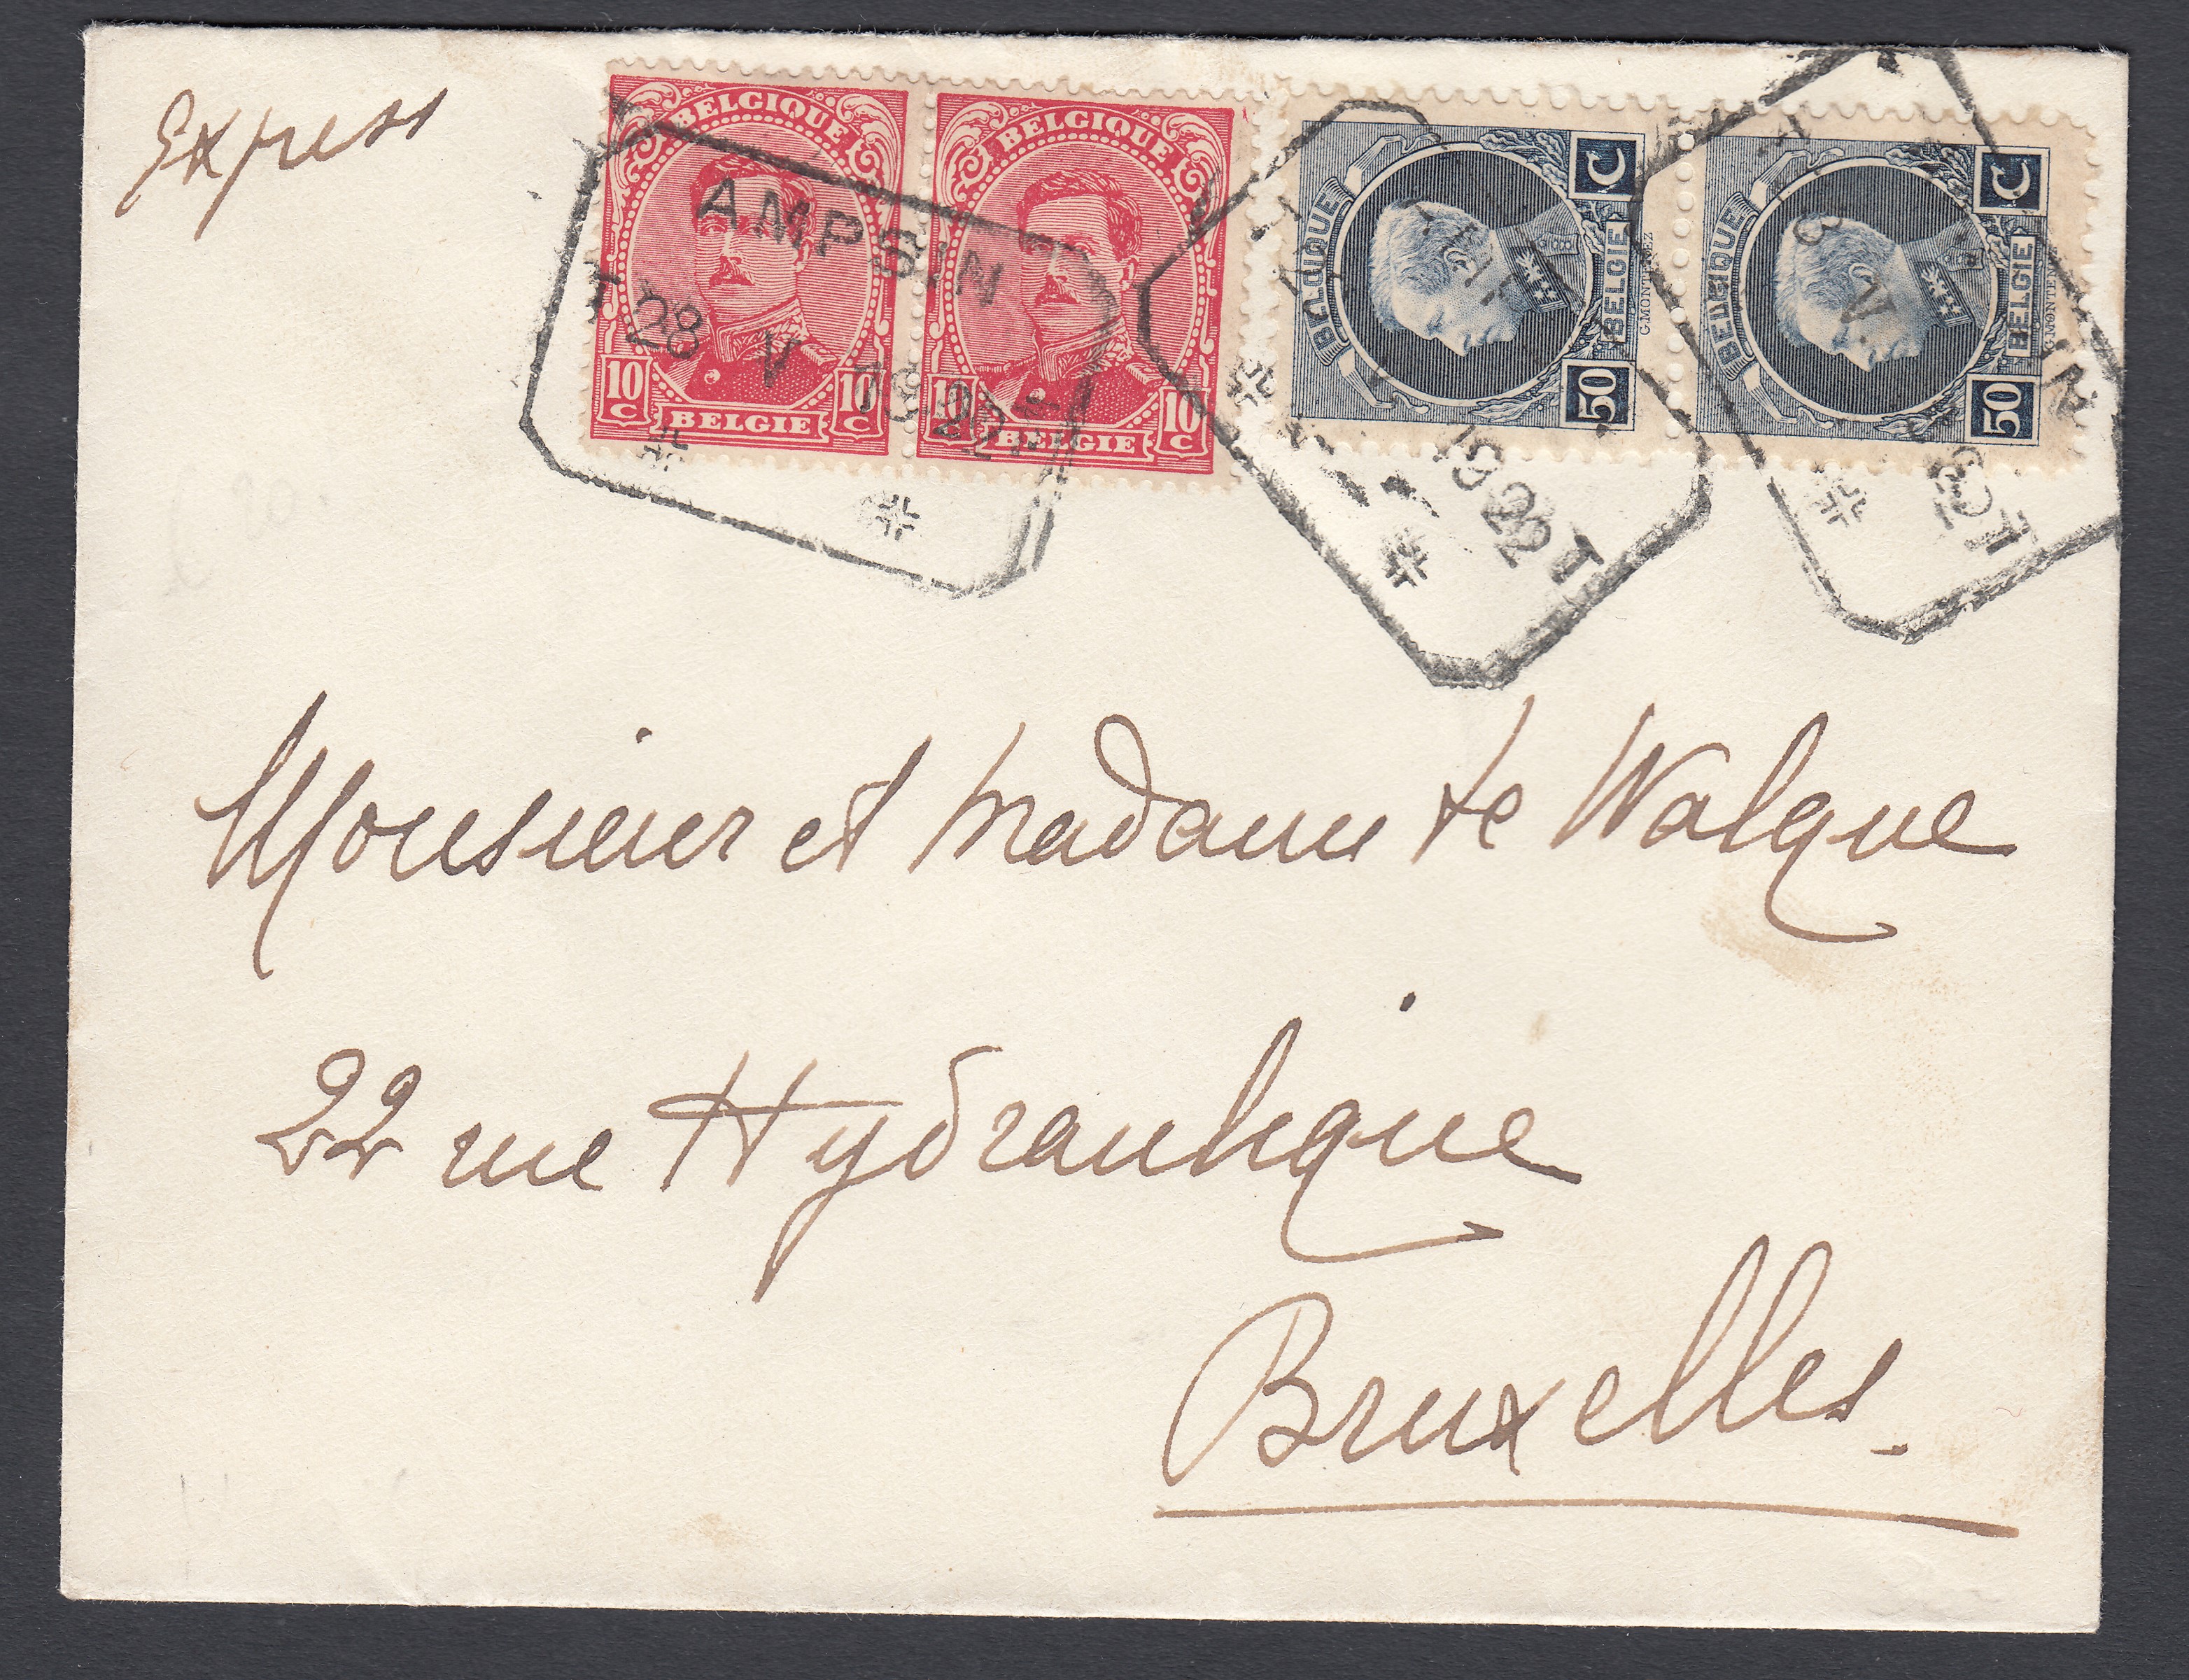 Express
BELGIQUE
10 C 10 C
BELGIE
BELGIQUE
10 10 C
BELGIE
AMPSIN
T 28 V 1922 T
BELGIQUE
BELGIE
50 C
G.MONTENEZ
1922 T
BELGIQUE
BELGIE
50 C
Monsieur et Madame de Walque
22 rue Hydraulique
Bruxelles.